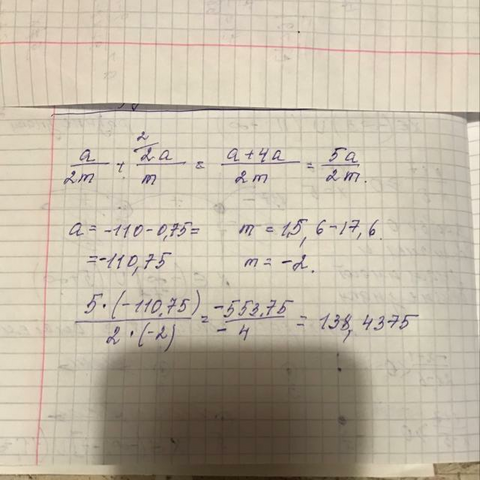 a/2m + 2/2a/m = a+4a/2m = 5a/2m.
a = -110-0,75= m = 15,6-17,6.
=-110,75 m = -2.
5·(-110,75)/2·(-2) = -553,75/-4 = 138,4375